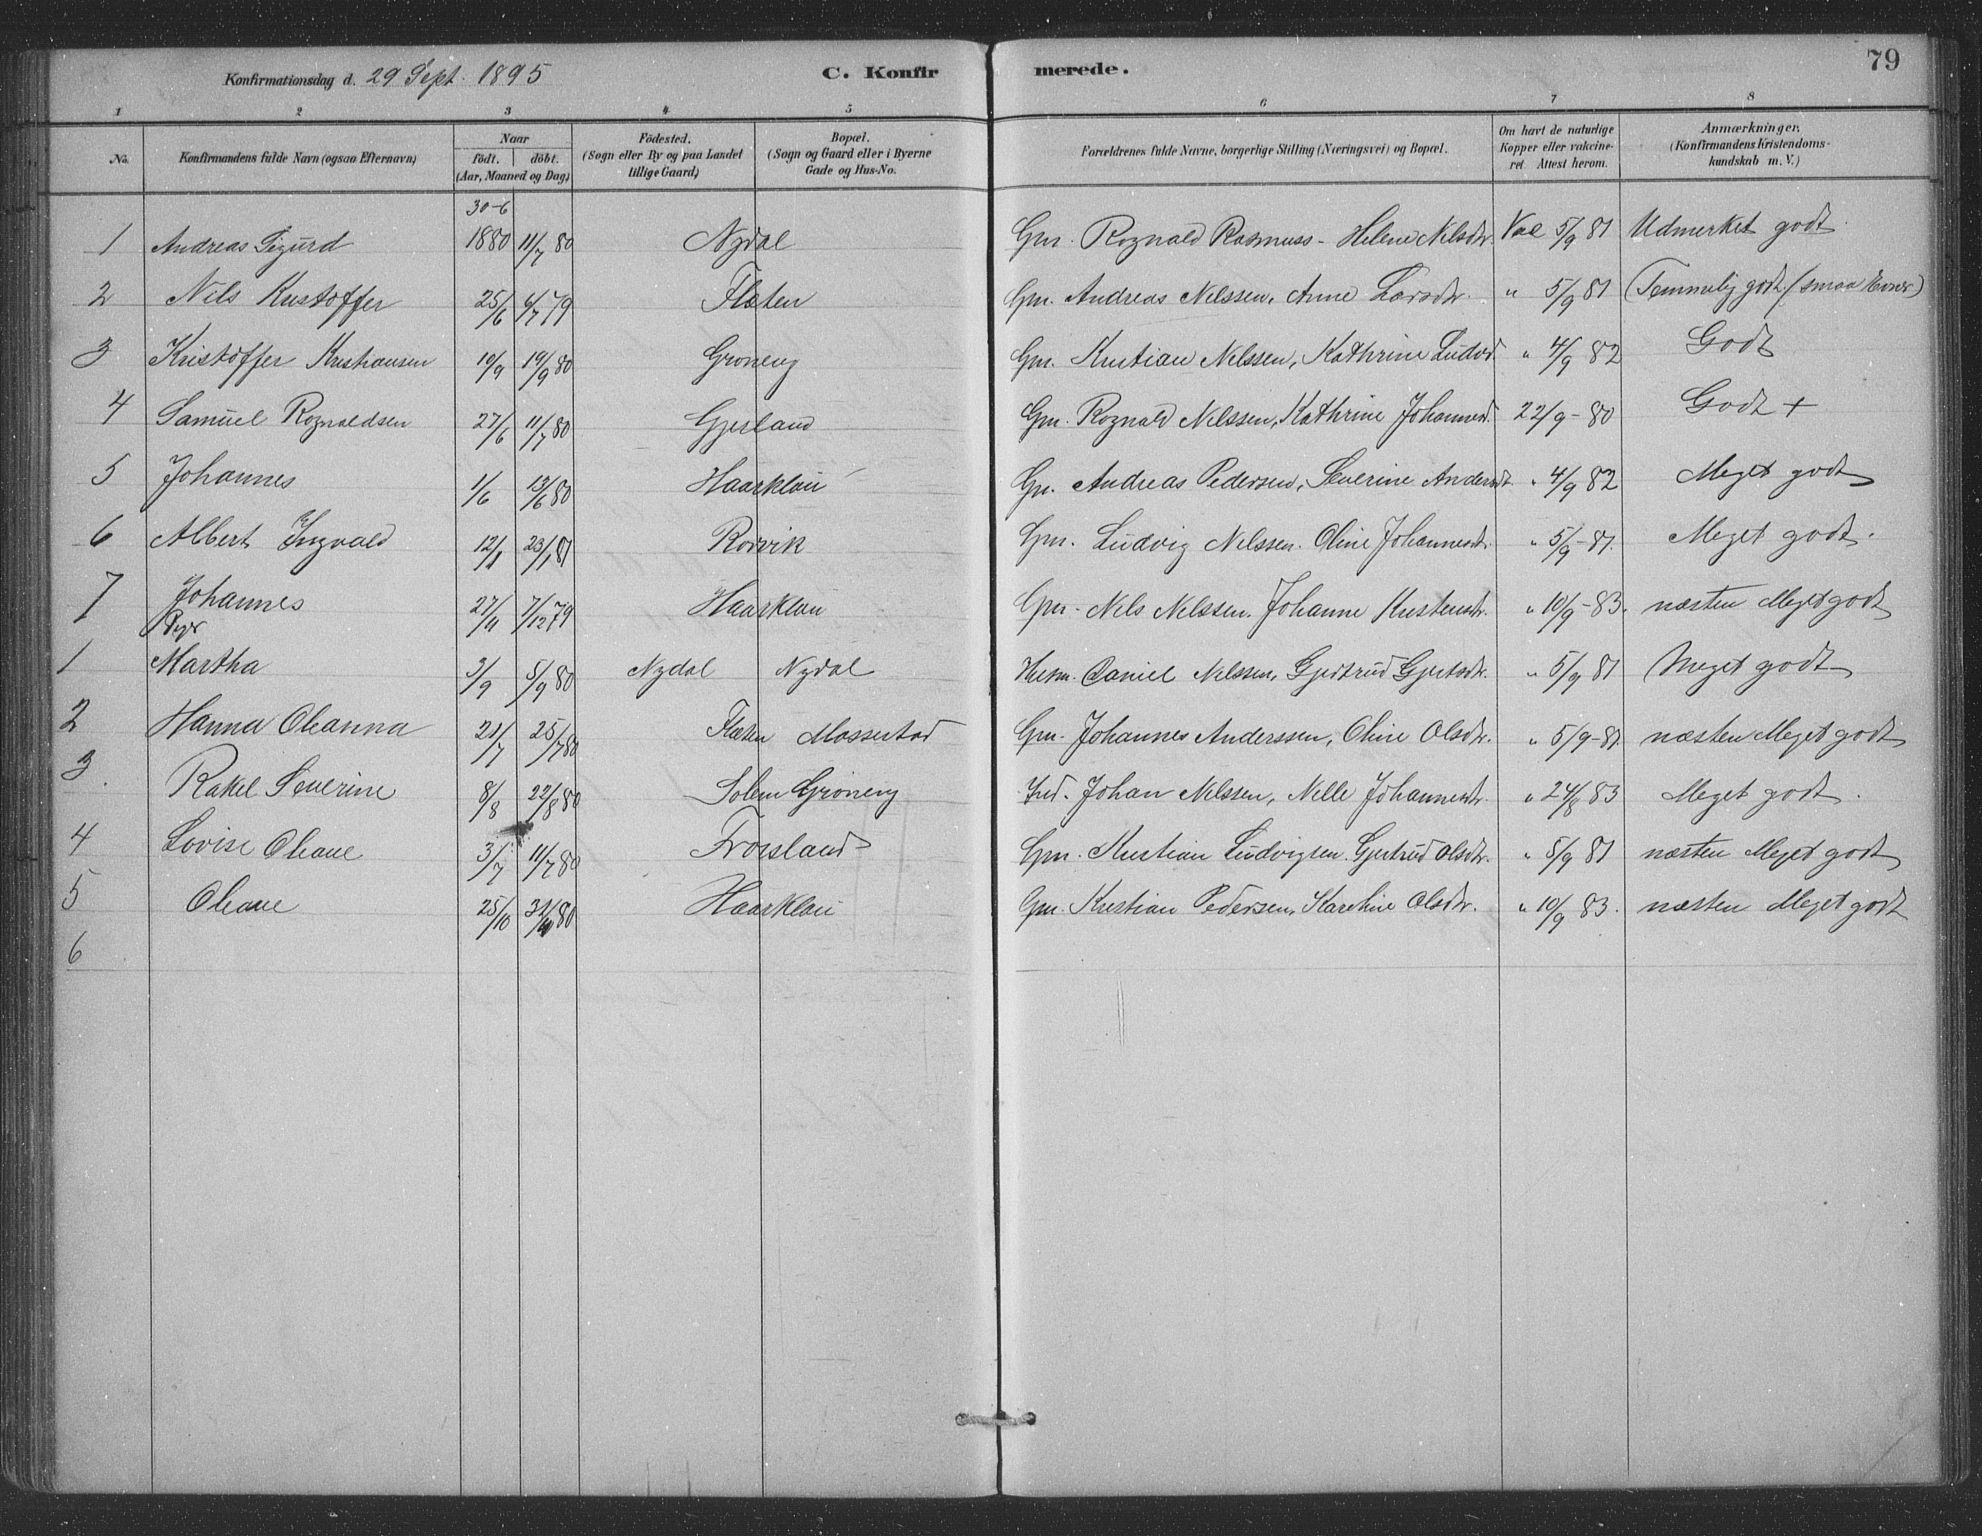 Konfirmationsdag d. 29 Sept. 1895 C. Konfirmerede. 79
1 2 3 4 5 6 7 8
No. Konfirmandens fulde Navn (ogsaa Efternavn) Naar födt. döbt. (Aar, Maaned og Dag) Födested. (Sogn eller By og paa Landet tillige Gaard) Bopæl. (Sogn og Gaard eller i Byerne Gade og Hus-No. Forældrenes fulde Navne, borgerlige Stilling (Næringsvei) og Bopæl. Om havt de naturlige Kopper eller vakcineret Attest herom. Anmærkninger. (Konfirmandens Kristendomskundskab m. V.)
1 Andreas Sigurd 30-6 1880 11/7 80 Nydal Gm. Rognald Rasmuss- Helene Nilsdtr. Vac 5/9 81 Udmerket godt.
2 Nils Kristoffer 25/6 6/7 79 Flæten Gm. Andreas Nilssen, Anne Larsdtr. " 5/9 81 (Temmelig godt (smaa Evner)
3 Kristoffer Kristiansen 10/9 19/9 80 Grøneng Gm. Kristian Nilssen, Kathrine Ludvd " 4/9 82 Godt
4 Samuel Rognaldsen 27/6 11/7 80 Gjesland Gm. Rognald Nilssen, Kathrine Johannesd. 22/9-80 Godt +
5 Johannes 1/6 13/6 80 Haarklau Gm. Andreas Pedersen, Severine Andersdt " 4/9 82 Meget godt
6 Albert Ingvald 12/1 23/1 81 Rorvik Gm. Ludvig Nilssen. Oline Johannesdt. " 5/9-81. Meget godt.
7 Johannes 27/11 7/12 79 Haarklau Gm. Nils Nilssen. Johanne Kristensdr. " 10/9-83. næsten Meget godt
Piger
1 Martha 3/9 5/9 80 Nydal Nydal Husm. Daniel Nilssen, Gjertrud Gjertsdtr. " 5/9 81 Meget godt
2 Hanna Oleanna 21/7 25/7 80 Flæten Mosserstad Gm. Johannes Anderssen, Oline Olsdtr. " 5/9-81. næsten Meget godt
3. Rakel Severine 8/8 22/8 80 Solem Grøneng Ind. Johan Nilssen, Nille Johannesdtr. " 24/8 83 Meget godt.
4 Lovise Oleane 3/7 11/7 80 Froisland Gm. Kristian Ludvigsen Gjertrud Olsdtr. " 5/9 81 næsten Meget godt
5 Oleane 25/10 31/10 80 Haarklau Gm. Kristian Pedersen, Karoline Olsdtr. " 10/9 83. næsten Meget godt
6